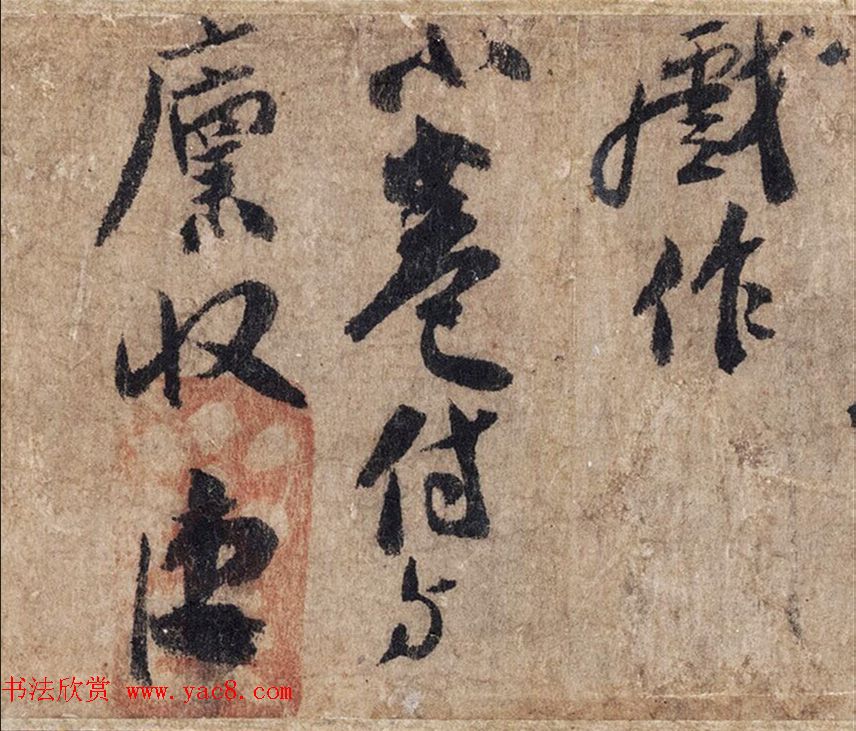 戲作
小卷付与
廩收
书法欣赏 www.yac8.com